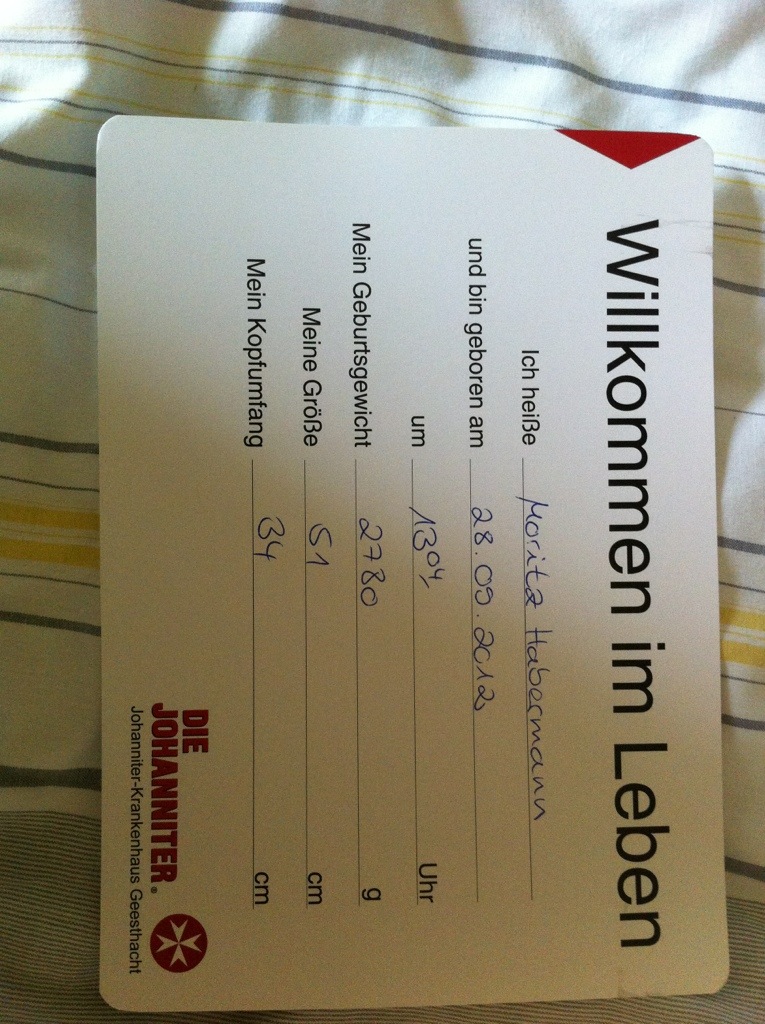 Willkommen im Leben
Ich heiße Moritz Habermann
und bin geboren am 28.09.2012
um 13 04 Uhr
Mein Geburtsgewicht 2780 g
Meine Größe 51 cm
Mein Kopfumfang 34 cm
DIE
JOHANNITER®
Johanniter-Krankenhaus Geesthacht